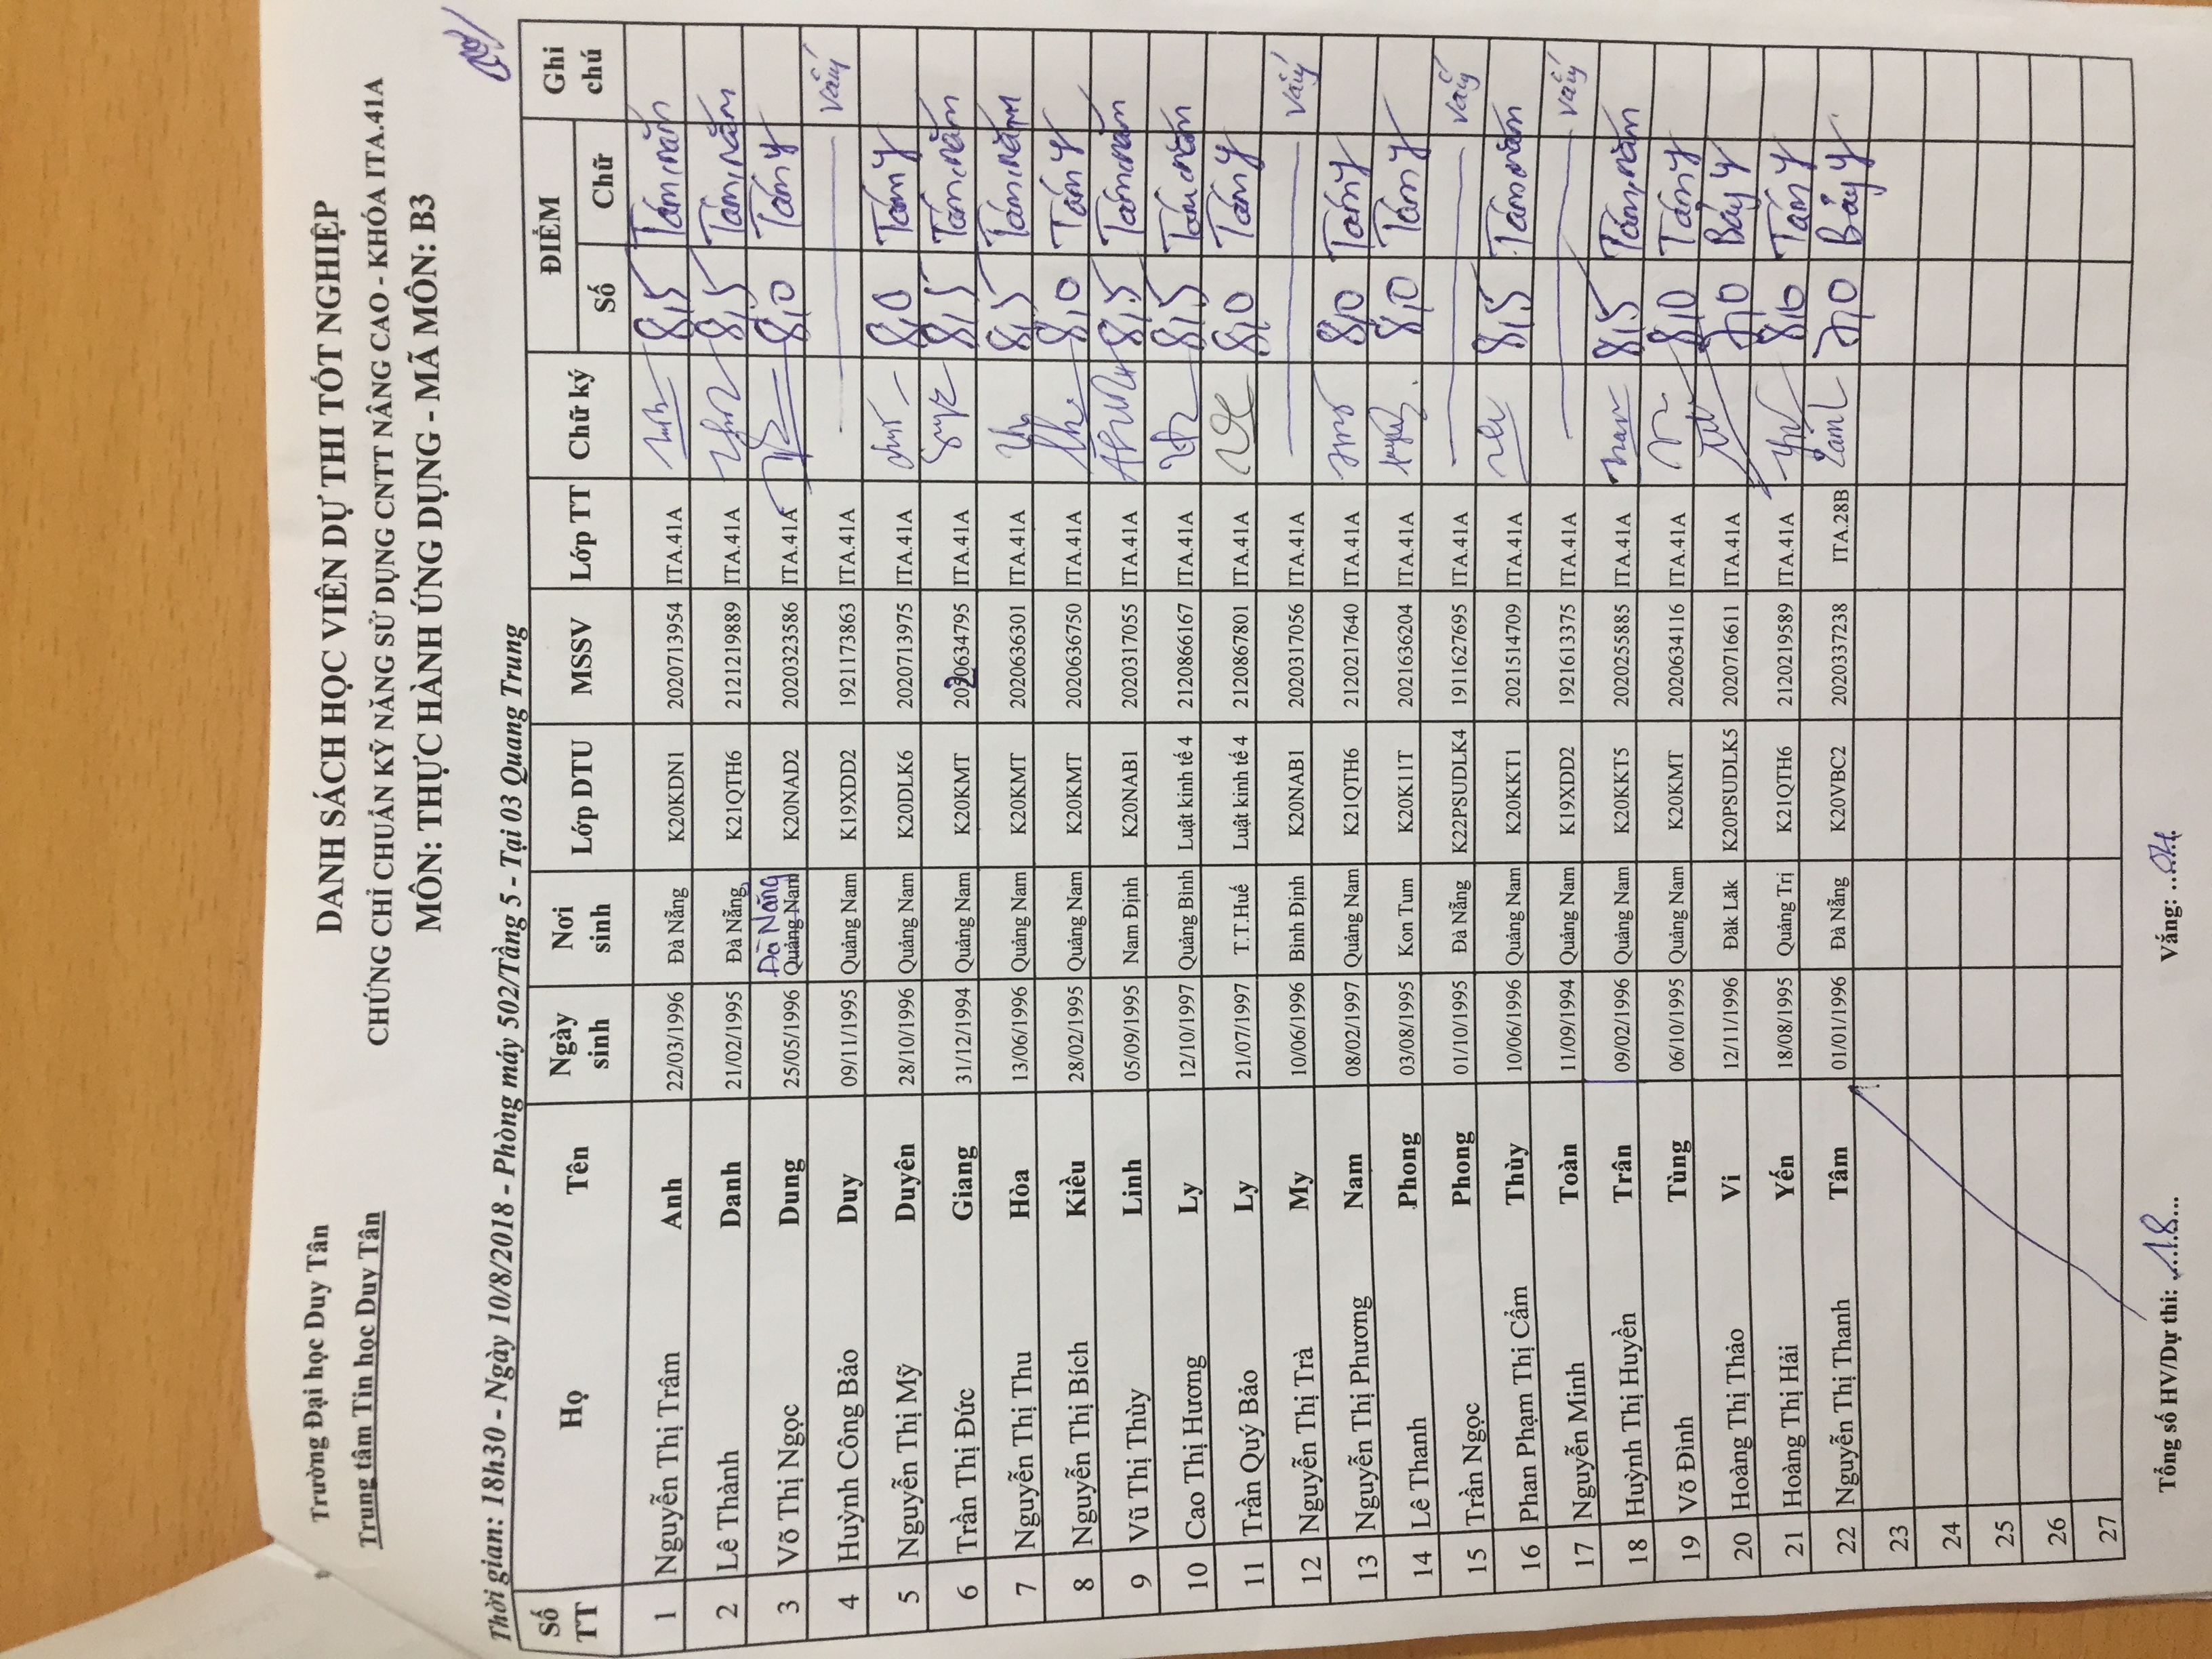 Trường Đại học Duy Tân
Trung tâm Tin học Duy Tân
DANH SÁCH HỌC VIÊN DỰ THI TỐT NGHIỆP
CHỨNG CHỈ CHUẨN KỸ NĂNG SỬ DỤNG CNTT NÂNG CAO - KHÓA ITA.41A
MÔN: THỰC HÀNH ỨNG DỤNG - MÃ MÔN: B3
Thời gian: 18h30 - Ngày 10/8/2018 - Phòng máy 502/Tầng 5 - Tại 03 Quang Trung
Số TT Họ Tên Ngày sinh Nơi sinh Lớp DTU MSSV Lớp TT Chữ ký ĐIỂM Số Chữ Ghi chú
1 Nguyễn Thị Trâm Anh 22/03/1996 Đà Nẵng K20KDN1 2020713954 ITA.41A 8,5 Tám, năm
2 Lê Thành Danh 21/02/1995 Đà Nẵng K21QTH6 2121219889 ITA.41A 8,5 Tám, năm
3 Võ Thị Ngọc Dung 25/05/1996 Quảng Nam Đà Nẵng K20NAD2 2020323586 ITA.41A 8,0 Tám y
4 Huỳnh Công Bảo Duy 09/11/1995 Quảng Nam K19XDD2 1921173863 ITA.41A Vắng
5 Nguyễn Thị Mỹ Duyên 28/10/1996 Quảng Nam K20DLK6 2020713975 ITA.41A 8,0 Tám y
6 Trần Thị Đức Giang 31/12/1994 Quảng Nam K20KMT 2020634795 ITA.41A 8,5 Tám, năm
7 Nguyễn Thị Thu Hòa 13/06/1996 Quảng Nam K20KMT 2020636301 ITA.41A 8,5 Tám, năm
8 Nguyễn Thị Bích Kiều 28/02/1995 Quảng Nam K20KMT 2020636750 ITA.41A 8,0 Tám y
9 Vũ Thị Thùy Linh 05/09/1995 Nam Định K20NAB1 2020317055 ITA.41A 8,5 Tám, năm
10 Cao Thị Hương Ly 12/10/1997 Quảng Bình Luật kinh tế 4 2120866167 ITA.41A 8,5 Tám, năm
11 Trần Quý Bảo Ly 21/07/1997 T.T.Huế Luật kinh tế 4 2120867801 ITA.41A 8,0 Tám y
12 Nguyễn Thị Trà My 10/06/1996 Bình Định K20NAB1 2020317056 ITA.41A Vắng
13 Nguyễn Thị Phương Nam 08/02/1997 Quảng Nam K21QTH6 2120217640 ITA.41A 8,0 Tám y
14 Lê Thanh Phong 03/08/1995 Kon Tum K20K11T 2021636204 ITA.41A 8,0 Tám y
15 Trần Ngọc Phong 01/10/1995 Đà Nẵng K22PSUDLK4 1911627695 ITA.41A Vắng
16 Phan Phạm Thị Cẩm Thùy 10/06/1996 Quảng Nam K20KKT1 2021514709 ITA.41A 8,5 Tám, năm
17 Nguyễn Minh Toàn 11/09/1994 Quảng Nam K19XDD2 1921613375 ITA.41A Vắng
18 Huỳnh Thị Huyền Trân 09/02/1996 Quảng Nam K20KKT5 2020255885 ITA.41A 8,5 Tám, năm
19 Võ Đình Tùng 06/10/1995 Quảng Nam K20KMT 2020634116 ITA.41A 8,0 Tám y
20 Hoàng Thị Thảo Vi 12/11/1996 Đăk Lăk K20PSUDLK5 2020716611 ITA.41A 7,0 Bảy y
21 Hoàng Thị Hải Yến 18/08/1995 Quảng Trị K21QTH6 2120219589 ITA.41A 8,0 Tám y
22 Nguyễn Thị Thanh Tâm 01/01/1996 Đà Nẵng K20VBC2 2020337238 ITA.28B Tâm 7,0 Bảy y
23
24
25
26
27
Tổng số HV/Dự thi: 18 Vắng: 04